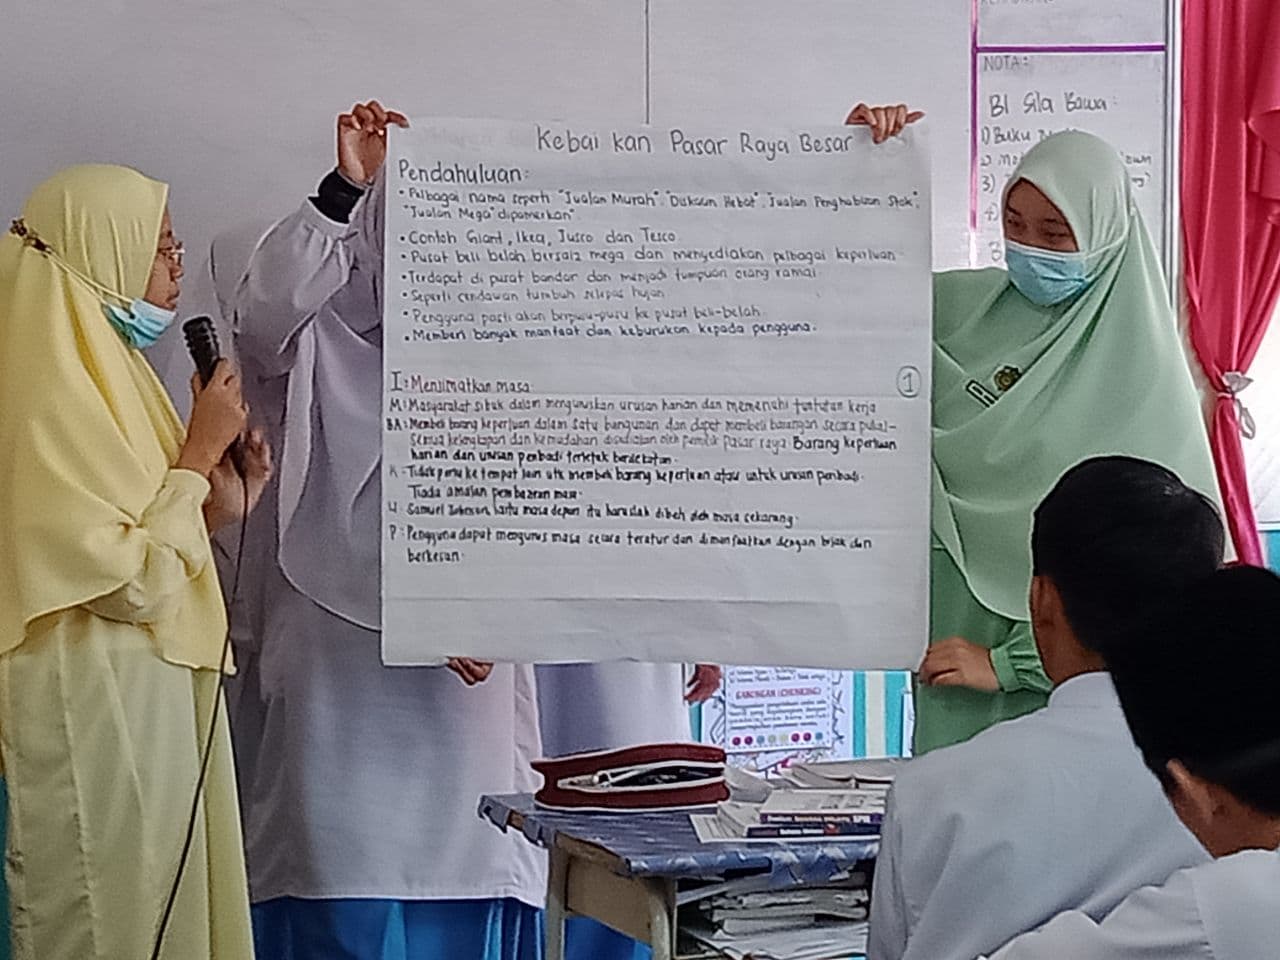 Kebai kan Pasar Raya Besar
Pendahuluan:
• Pelbagai nama seperti "Jualan Murah", "Diskaun Hebat", "Jualan Penghabisan Stok",
"Jualan Mega" dipamerkan".
• Contoh Giant, Ikea, Jusco dan Tesco
• Pusat beli belah bersaiz mega dan menyediakan pelbagai keperluan
• Terdapat di pusat bandar dan menjadi tumpuan orang ramai.
• Seperti cendawan tumbuh selepas hujan
• Pengguna pasti akan berpusu-pusu ke pusat beli-belah.
• Memberi banyak manfaat dan keburukan kepada pengguna.
I: Menjimatkan masa.
1
M: Masyarakat sibuk dalam menguruskan urusan harian dan memenuhi tuntutan kerja
BA: Membeli barang keperluan dalam satu bangunan dan dapat membeli barangan secara pukal-
semua kelengkapan dan kemudahan disediakan oleh pemilik pasar raya. Barang keperluan
harian dan urusan peribadi terletak berdekatan.
K - Tidak perlu ke tempat lain utk membeli barang keperluan atau untuk urusan peribadi.
Tiada amalan pembaziran masa.
U: Samuel Johnson, iaitu masa depan itu haruslah dibeli oleh masa sekarang.
P: Pengguna dapat mengurus masa secara teratur dan dimanfaatkan dengan bijak dan
berkesan.
NOTA:
BI Sila Bawa:
1) Buku
2)
3)
4)
GABUNGAN (CHUNKING)
SPM